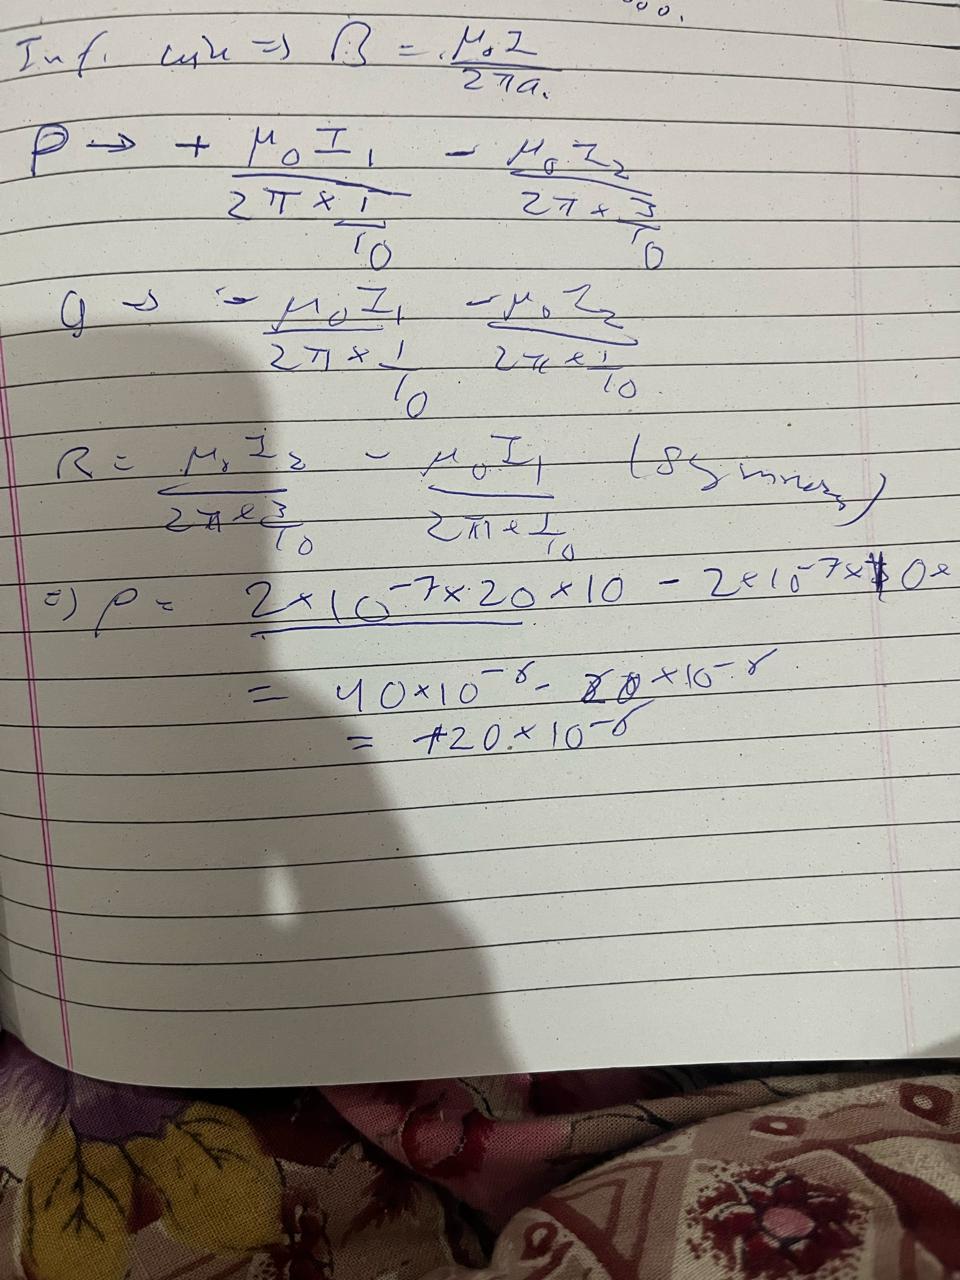 Inf. wire => B = μ₀I / 2πa.
P → + μ₀I₁ / 2π × 1/10 - μ₀I₂ / 2π × 3/10
Q → - μ₀I₁ / 2π × 1/10 - μ₀I₂ / 2π × 1/10
R = μ₀I₂ / 2π × 3/10 - μ₀I₁ / 2π × 1/10 (Symmetry)
=> P = 2×10⁻⁷×20×10 - 2×10⁻⁷× 0×
= 40×10⁻⁶ - 20×10⁻⁶
= +20×10⁻⁶